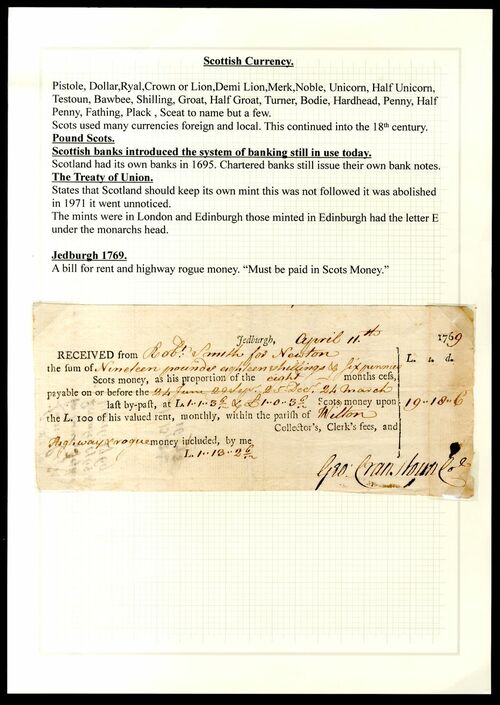 Scottish Currency.
Pistole, Dollar,Ryal,Crown or Lion,Demi Lion,Merk,Noble, Unicorn, Half Unicorn,
Testoun, Bawbee, Shilling, Groat, Half Groat, Turner, Bodie, Hardhead, Penny, Half
Penny, Fathing, Plack , Sceat to name but a few.
Scots used many currencies foreign and local. This continued into the 18th century.
Pound Scots.
Scottish banks introduced the system of banking still in use today.
Scotland had its own banks in 1695. Chartered banks still issue their own bank notes.
The Treaty of Union.
States that Scotland should keep its own mint this was not followed it was abolished
in 1971 it went unnoticed.
The mints were in London and Edinburgh those minted in Edinburgh had the letter E
under the monarchs head.
Jedburgh 1769.
A bill for rent and highway rogue money. “Must be paid in Scots Money.”
Jedburgh, April 11th 1769
RECEIVED from Robt. Smith for Newton L. s. d.
the sum of Nineteen pounds eighteen shillings & six pennies
Scots money, as his proportion of the eight months cess,
payable on or before the 24 June 29 Sept. 25 Dec. 24 March
last by-past, at L. 1..1..3 & L 1..0..3 Scots money upon 19..18..6
the L. 100 of his valued rent, monthly, within the parish of Wilton
Collector's, Clerk's fees, and
Highway & rogue money included, by me
L. 1..13..2
Geo: Cranstoun